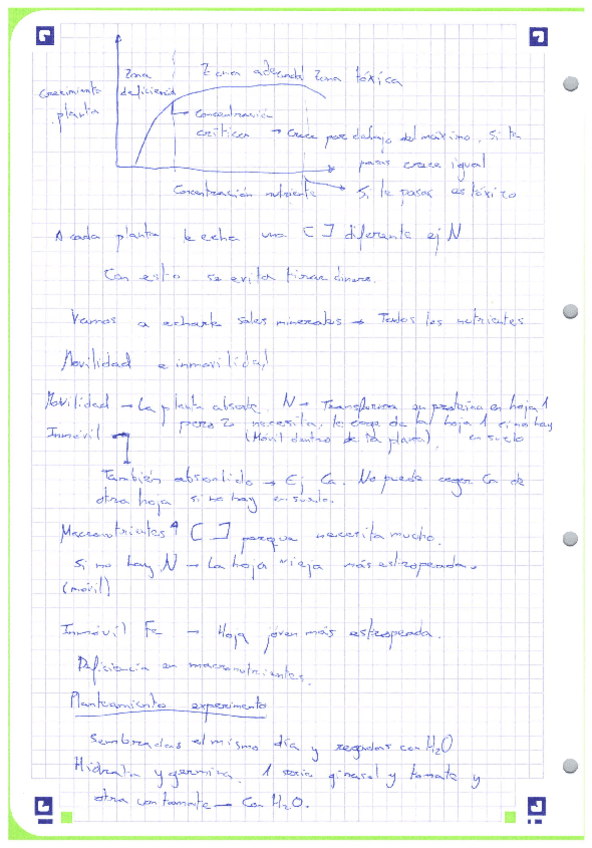 Zona Zona adecuada Zona tóxica
deficiencia
Crecimiento
planta
Concentración
crítica → Crece por debajo del máximo, si te
pasas crece igual
Concentración nutriente → Si te pasas es tóxico
A cada planta le echa una [ ] diferente ej N
Con esto se evita tirar dinero.
Vamos a echarle sales minerales → Todos los nutrientes
Movilidad e inmovilidad
Movilidad → La planta absorbe. N → Transforma su proteína en hoja 1
pero 2 necesita, le coge de la hoja 1 si no hay
(Móvil dentro de la planta). en suelo
Inmóvil
También absorbido → Ej Ca. No puede coger Ca de
otra hoja si no hay en suelo.
Macronutrientes ↑ [ ] porque necesita mucho.
Si no hay N → La hoja vieja más estropeada.
(móvil)
Inmóvil Fe → Hoja joven más estropeada.
Deficiencia en macronutrientes.
Planteamiento experimento
Sembradas el mismo día y regadas con H2O
Hidrata y germina. 1 serie girasol y tomate y
otra con tomate → Con H2O.